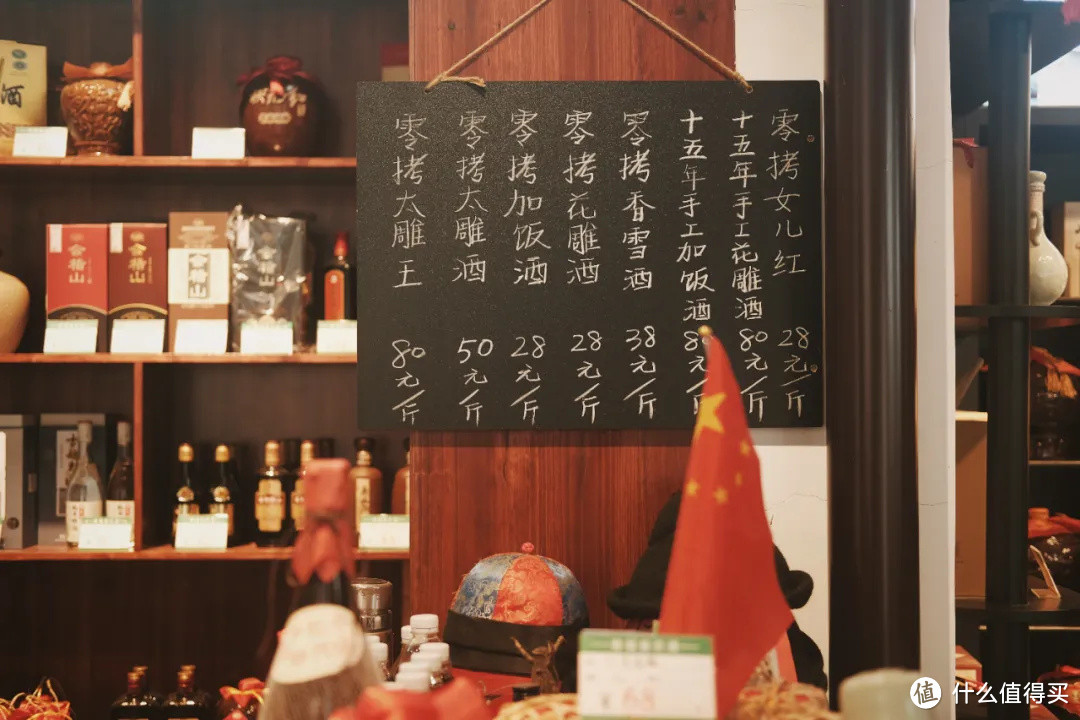 零拷女儿红 28元/斤
十五年手工花雕酒 80元/斤
十五年手工加饭酒
零拷香雪酒 38元/斤
零拷花雕酒 28元/斤
零拷加饭酒 28元/斤
零拷太雕酒 50元/斤
零拷太雕王 80元/斤
酒
状元红
会稽山
会稽山
会稽山
会稽山
值 什么值得买